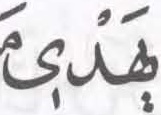 يَهْدِي مَ